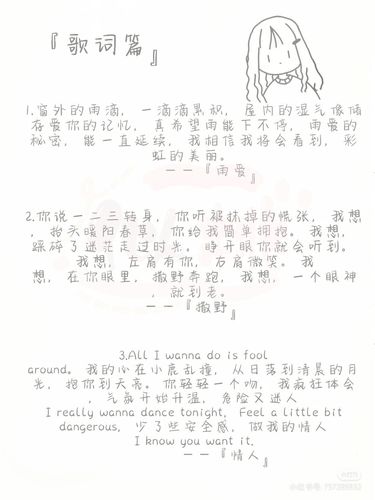 『歌词篇』
1.窗外的雨滴，一滴滴累积，屋内的湿气像储
存爱你的记忆，真希望雨能下不停，雨爱的
秘密，能一直延续，我相信我将会看到，彩
虹的美丽。
——『雨爱』
2.你说一二三转身，你听被抹掉的慌张，我想
，抬头暖阳春草，你给我简单拥抱。我想，
踩碎了迷茫走过时光。睁开眼你就会听到。
我想，左肩有你，右肩微笑。我
想，在你眼里，撒野奔跑，我想，一个眼神
，就到老。
——『撒野』
3.All I wanna do is fool
around。我的心在小鹿乱撞，从日落到清晨的月
光，抱你到天亮。你轻轻一个吻，我疯狂体会
，气氛开始升温，危险又迷人
I really wanna dance tonight, Feel a little bit
dangerous, 少了些安全感，做我的情人
I know you want it.
——『情人』
小红书